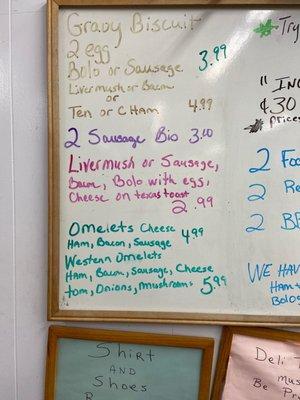 Gravy Biscuit
2 egg
Bolo or Sausage 3.99
Livermush or Bacon
or
Ten or C Ham 4.99
2 Sausage Bis 3.00
Livermush or Sausage,
Bacon, Bolo with egg,
Cheese on texas toast
2.99
Omelets Cheese
Ham, Bacon, Sausage 4.99
Western Omelets
Ham, Bacon, Sausage, Cheese
tom, Onions, mushrooms 5.99
Try
"
$30
prices
2
2
2
WE HAV
Ham
Bolog
Shirt
AND
Shoes
R
Deli
mus
Be